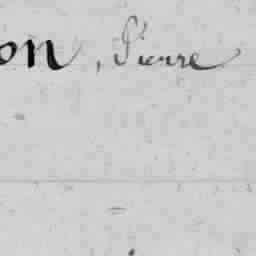 on, Pierre